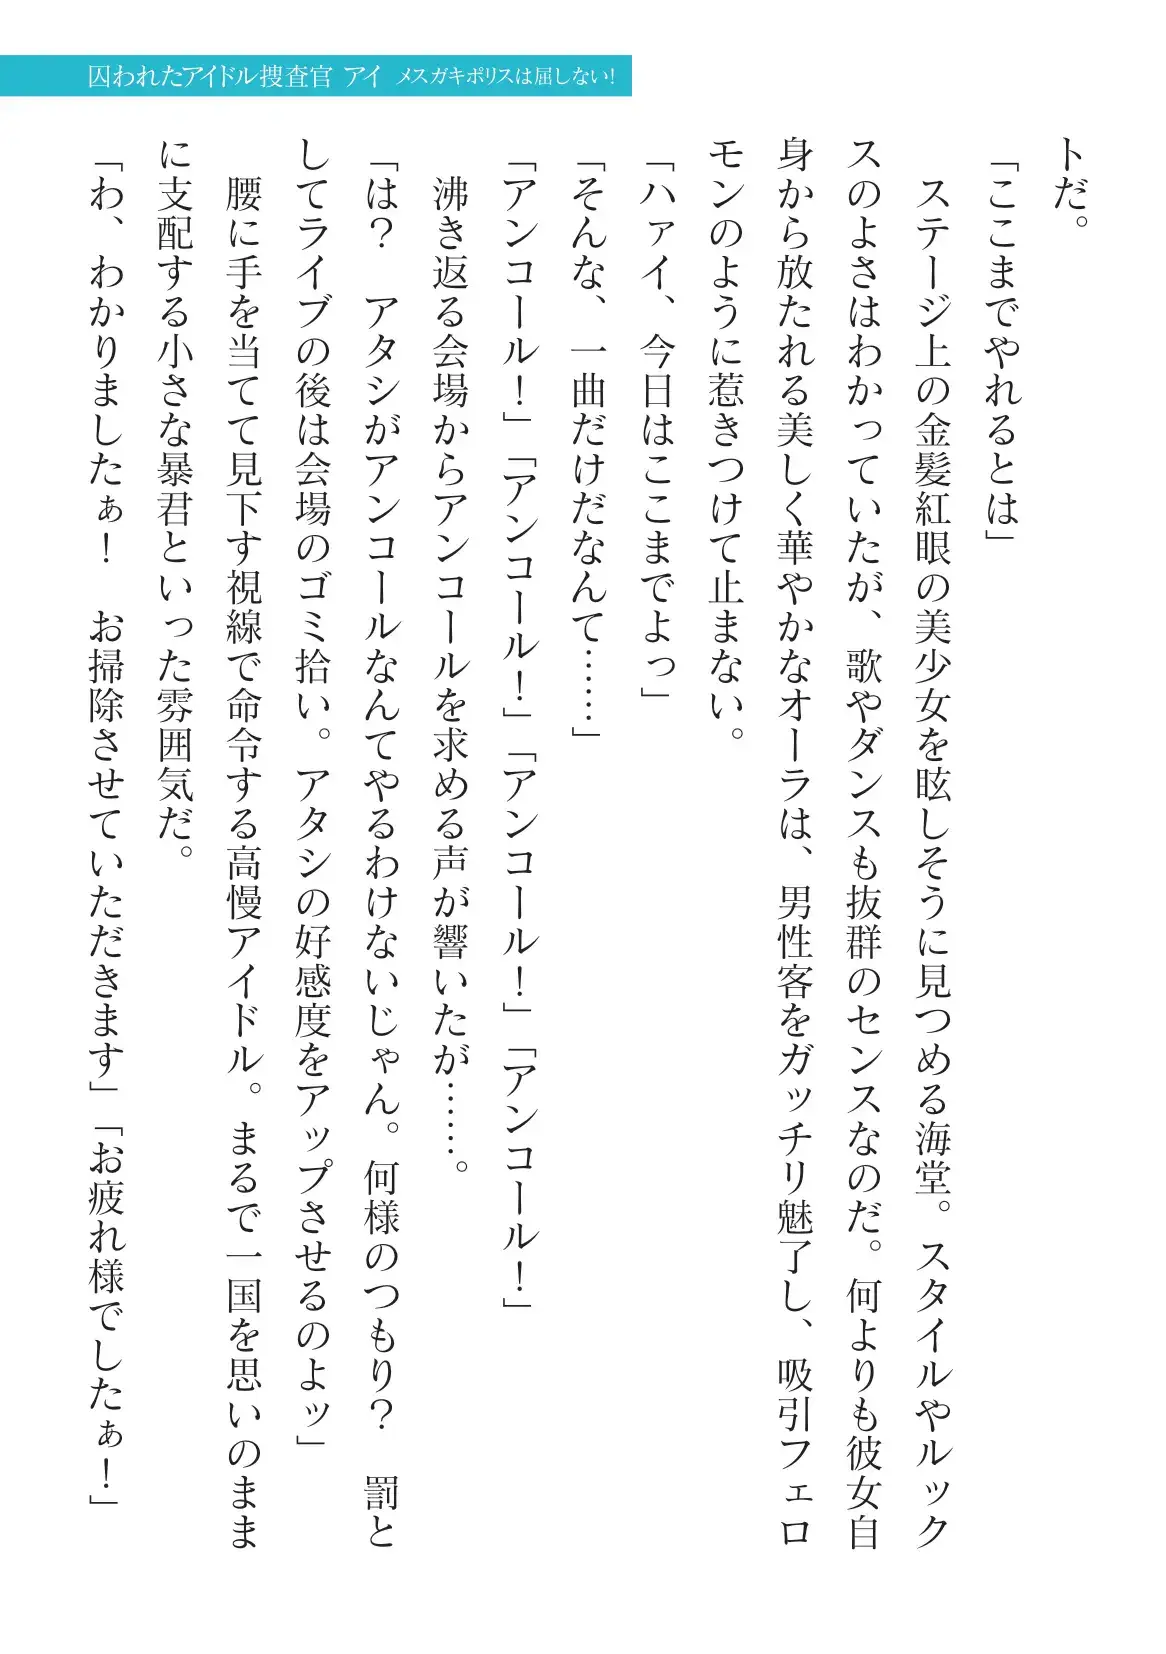 囚われたアイドル捜査官 アイ メスガキポリスは屈しない!
トだ。
「ここまでやれるとは」
　ステージ上の金髪紅眼の美少女を眩しそうに見つめる海堂。スタイルやルック
スのよさはわかっていたが、歌やダンスも抜群のセンスなのだ。何よりも彼女自
身から放たれる美しく華やかなオーラは、男性客をガッチリ魅了し、吸引フェロ
モンのように惹きつけて止まない。
「ハァイ、今日はここまでよっ」
「そんな、一曲だけだなんて……」
「アンコール！」「アンコール！」「アンコール！」「アンコール！」
　沸き返る会場からアンコールを求める声が響いたが……。
「は？　アタシがアンコールなんてやるわけないじゃん。何様のつもり？　罰と
してライブの後は会場のゴミ拾い。アタシの好感度をアップさせるのよッ」
　腰に手を当てて見下す視線で命令する高慢アイドル。まるで一国を思いのまま
に支配する小さな暴君といった雰囲気だ。
「わ、わかりましたぁ！　お掃除させていただきます」「お疲れ様でしたぁ！」